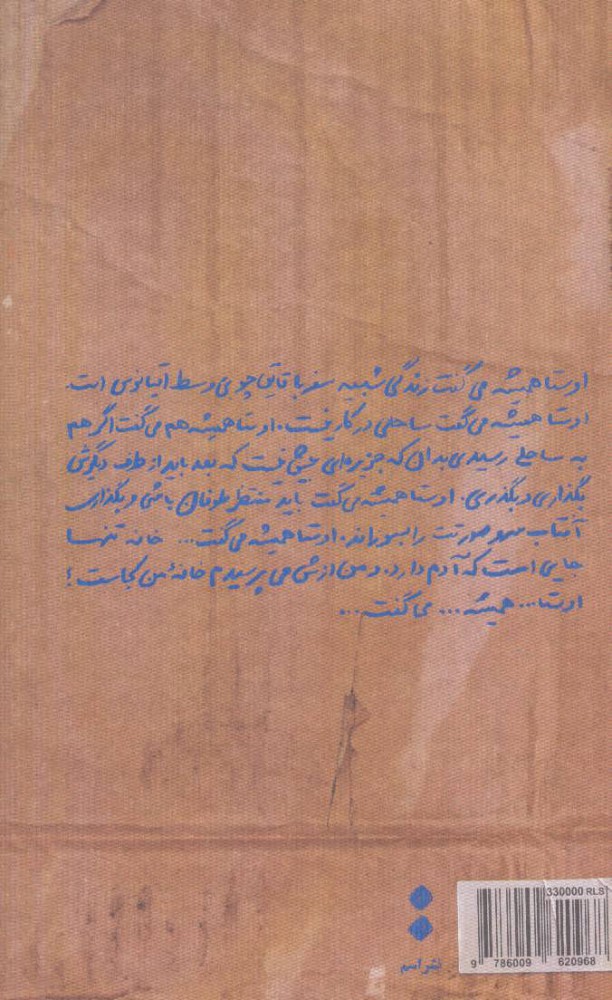 اوستا همیشه می‌گفت زندگی شبیه سفر با قایق چوبی وسط اقیانوس است.
اوستا همیشه می‌گفت ساحلی در کار نیست. اوستا همیشه هم می‌گفت اگر هم
به ساحلی رسیدی بدان که جزیره‌ای بیش نیست که بعد باید از طرف دیگرش
بگذاری و بگذری. اوستا همیشه می‌گفت باید منتظر طوفان باشی و بگذاری
آفتاب سر و صورتت را بسوزاند. اوستا همیشه می‌گفت... خانه تنها
جایی است که آدم دارد. و من ازش می‌پرسیدم خانهٔ من کجاست؟
اوستا... همیشه... می‌گفت...
330000 RLS
9 786009 620968
نشر اسم